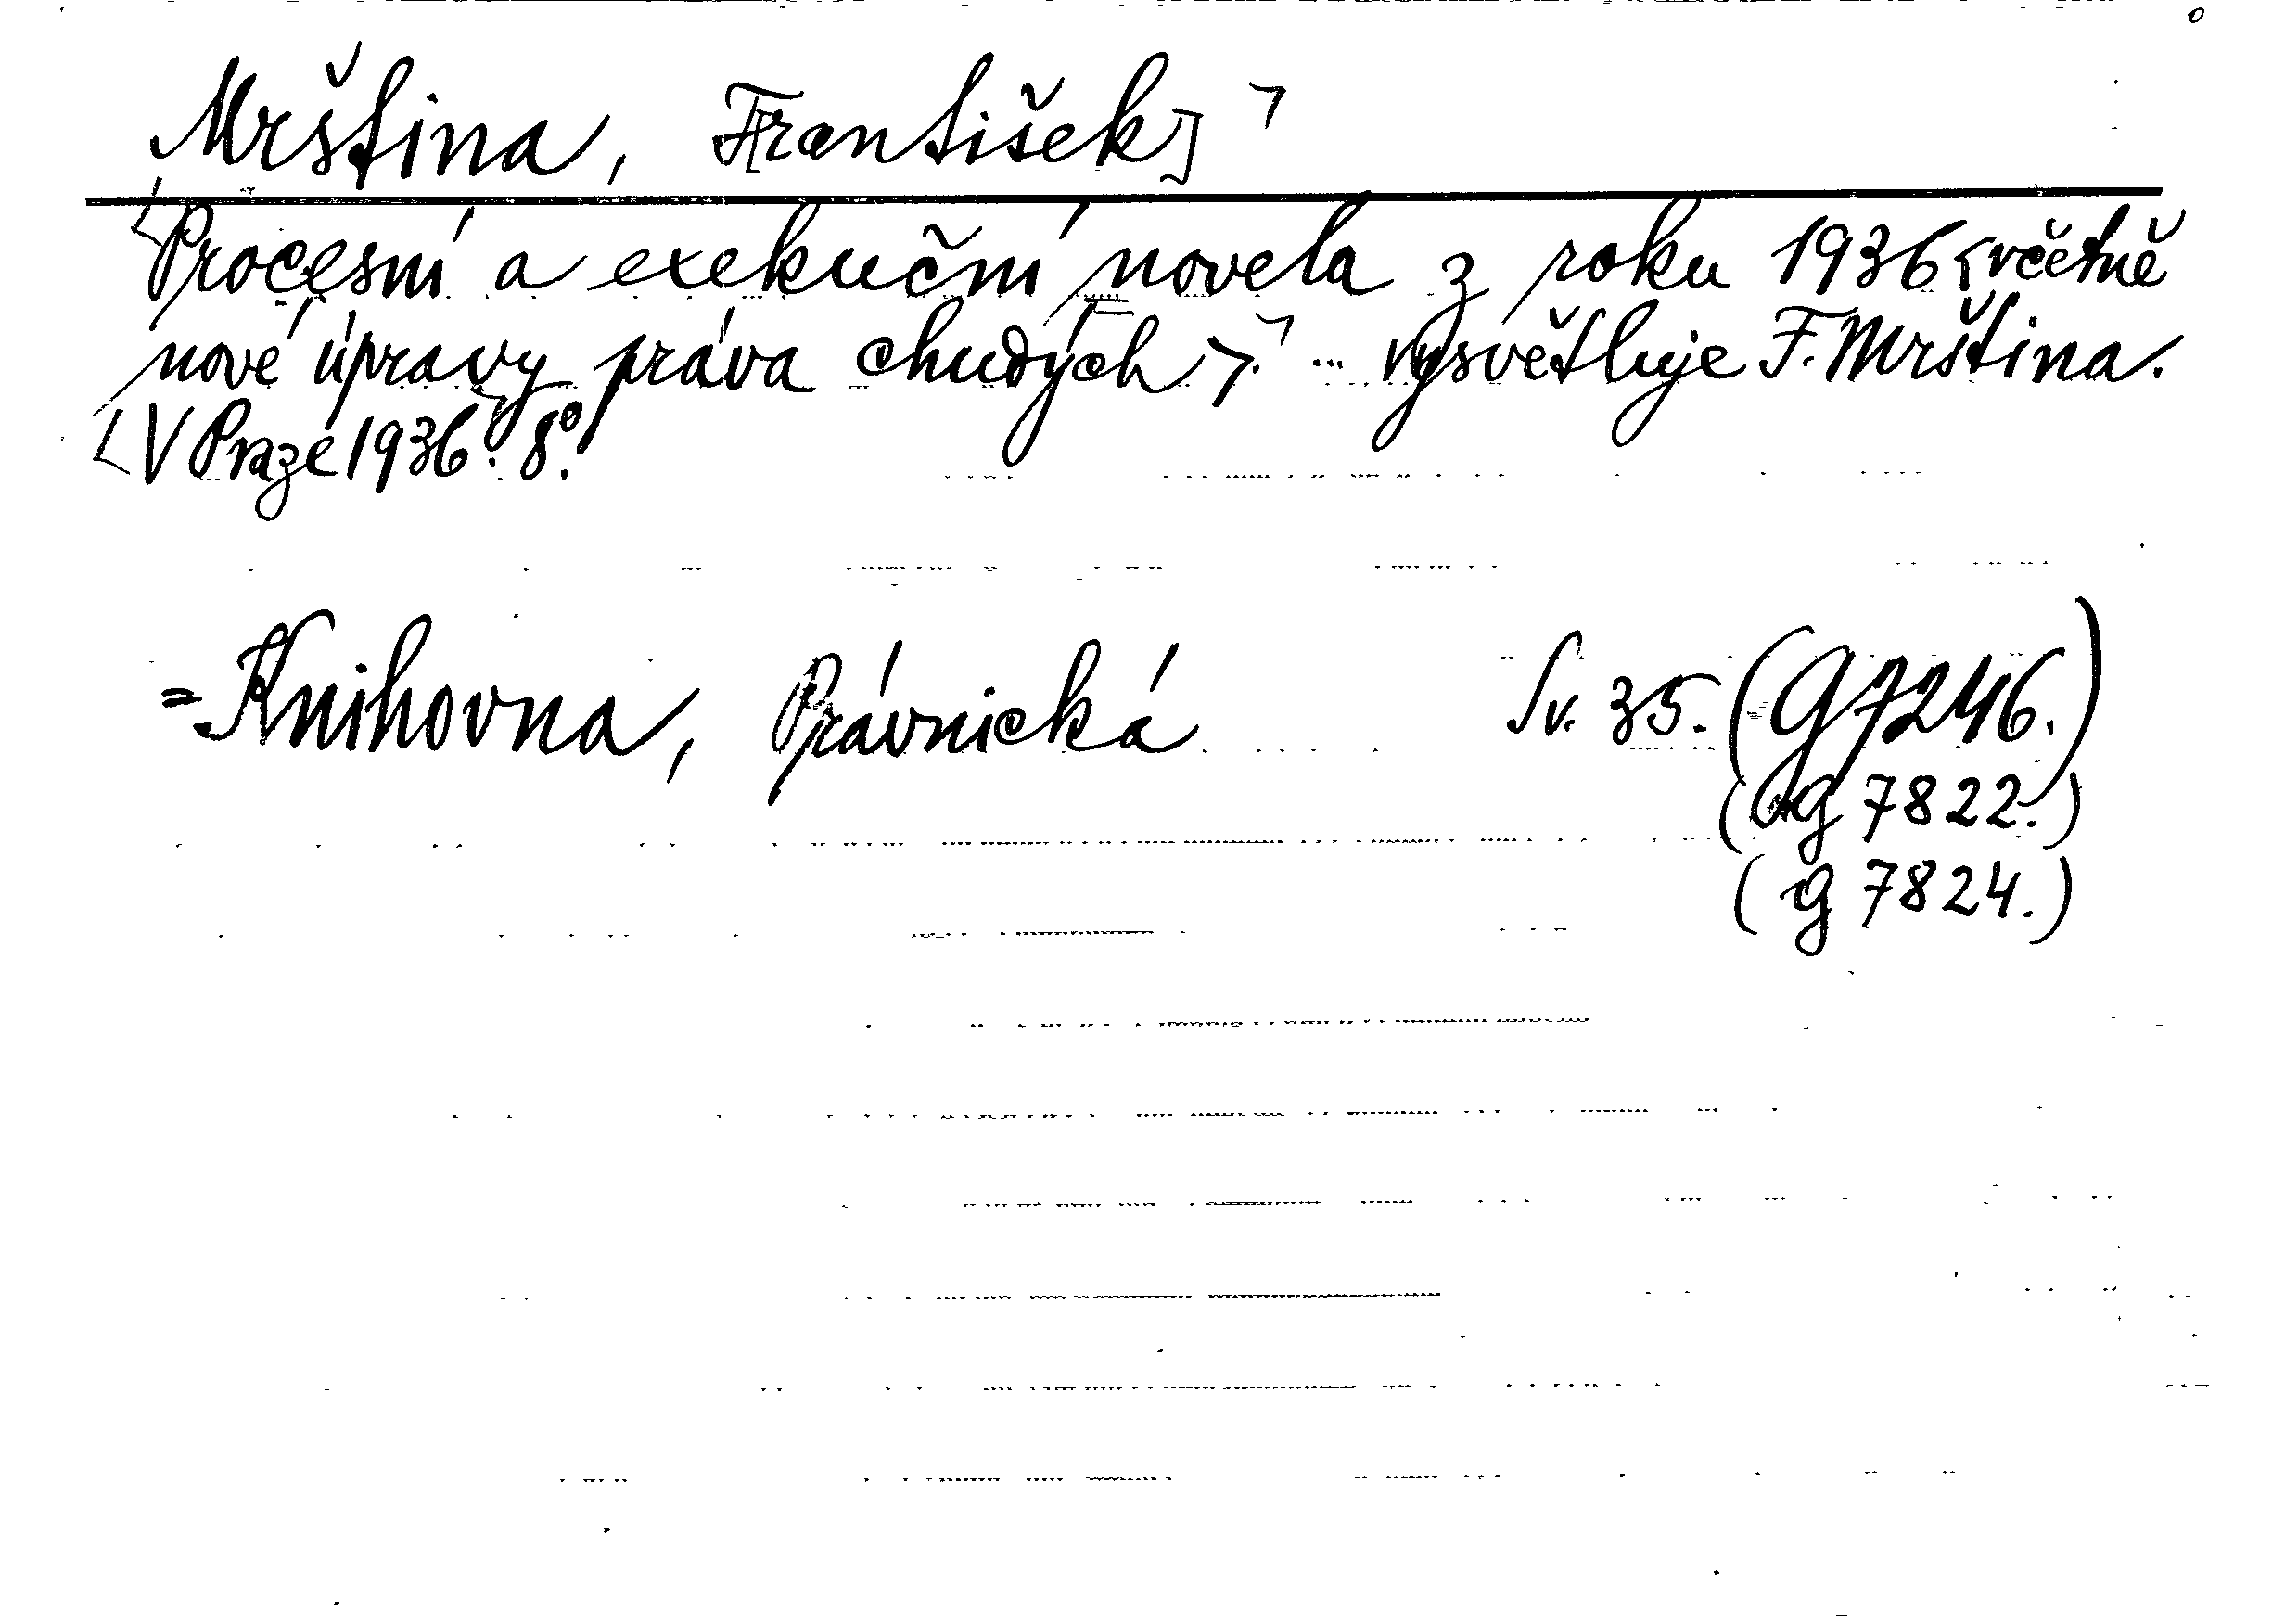 Mrština, F[rantišek]
Procesní a exekuční novela z roku 1936 <včetně
nové úpravy práva chudých>. ... vysvětluje F. Mrština.
V Praze 1936. 8°.
= Knihovna, Právnická Sv. 35. (G 7246.)
(g 7822.)
(g 7824.)